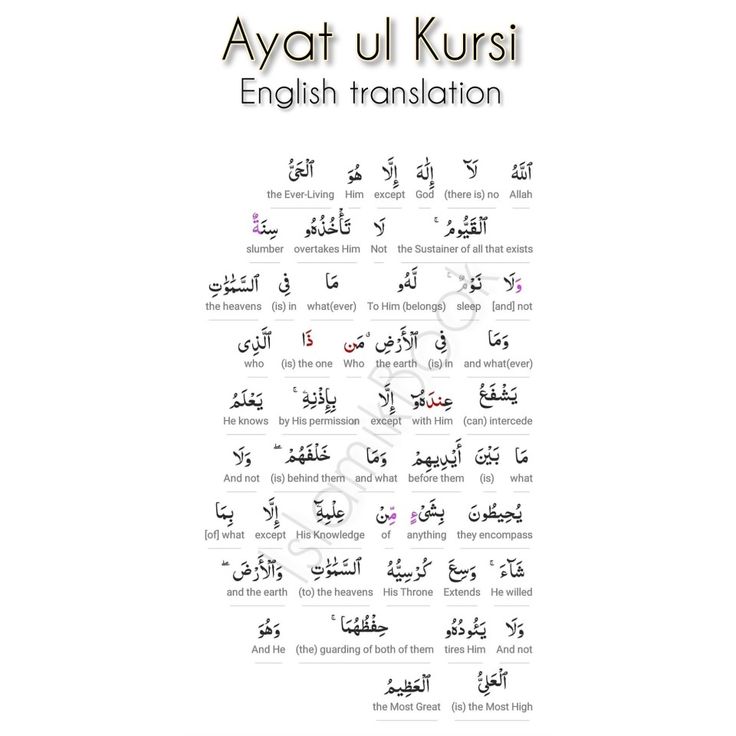 Ayat ul Kursi
English translation
ٱللَّهُ لَآ إِلَٰهَ إِلَّا هُوَ ٱلْحَىُّ
Allah (there is) no God except Him the Ever-Living
ٱلْقَيُّومُ ۚ لَا تَأْخُذُهُۥ سِنَةٌ
the Sustainer of all that exists Not overtakes Him slumber
وَلَا نَوْمٌ ۚ لَّهُۥ مَا فِى ٱلسَّمَٰوَٰتِ
[and] not sleep To Him (belongs) what(ever) (is) in the heavens
وَمَا فِى ٱلْأَرْضِ ۗ مَن ذَا ٱلَّذِى
and what(ever) (is) in the earth Who (is) the one who
يَشْفَعُ عِندَهُۥٓ إِلَّا بِإِذْنِهِۦ ۚ يَعْلَمُ
(can) intercede with Him except by His permission He knows
مَا بَيْنَ أَيْدِيهِمْ وَمَا خَلْفَهُمْ ۖ وَلَا
what (is) before them and what (is) behind them And not
يُحِيطُونَ بِشَىْءٍ مِّنْ عِلْمِهِۦٓ إِلَّا بِمَا
they encompass anything of His Knowledge except [of] what
شَآءَ ۚ وَسِعَ كُرْسِيُّهُ ٱلسَّمَٰوَٰتِ وَٱلْأَرْضَ ۖ
He willed Extends His Throne (to) the heavens and the earth
وَلَا يَـُٔودُهُۥ حِفْظُهُمَا ۚ وَهُوَ
And not tires Him (the) guarding of both of them And He
ٱلْعَلِىُّ ٱلْعَظِيمُ
(is) the Most High the Most Great
IslamikBook